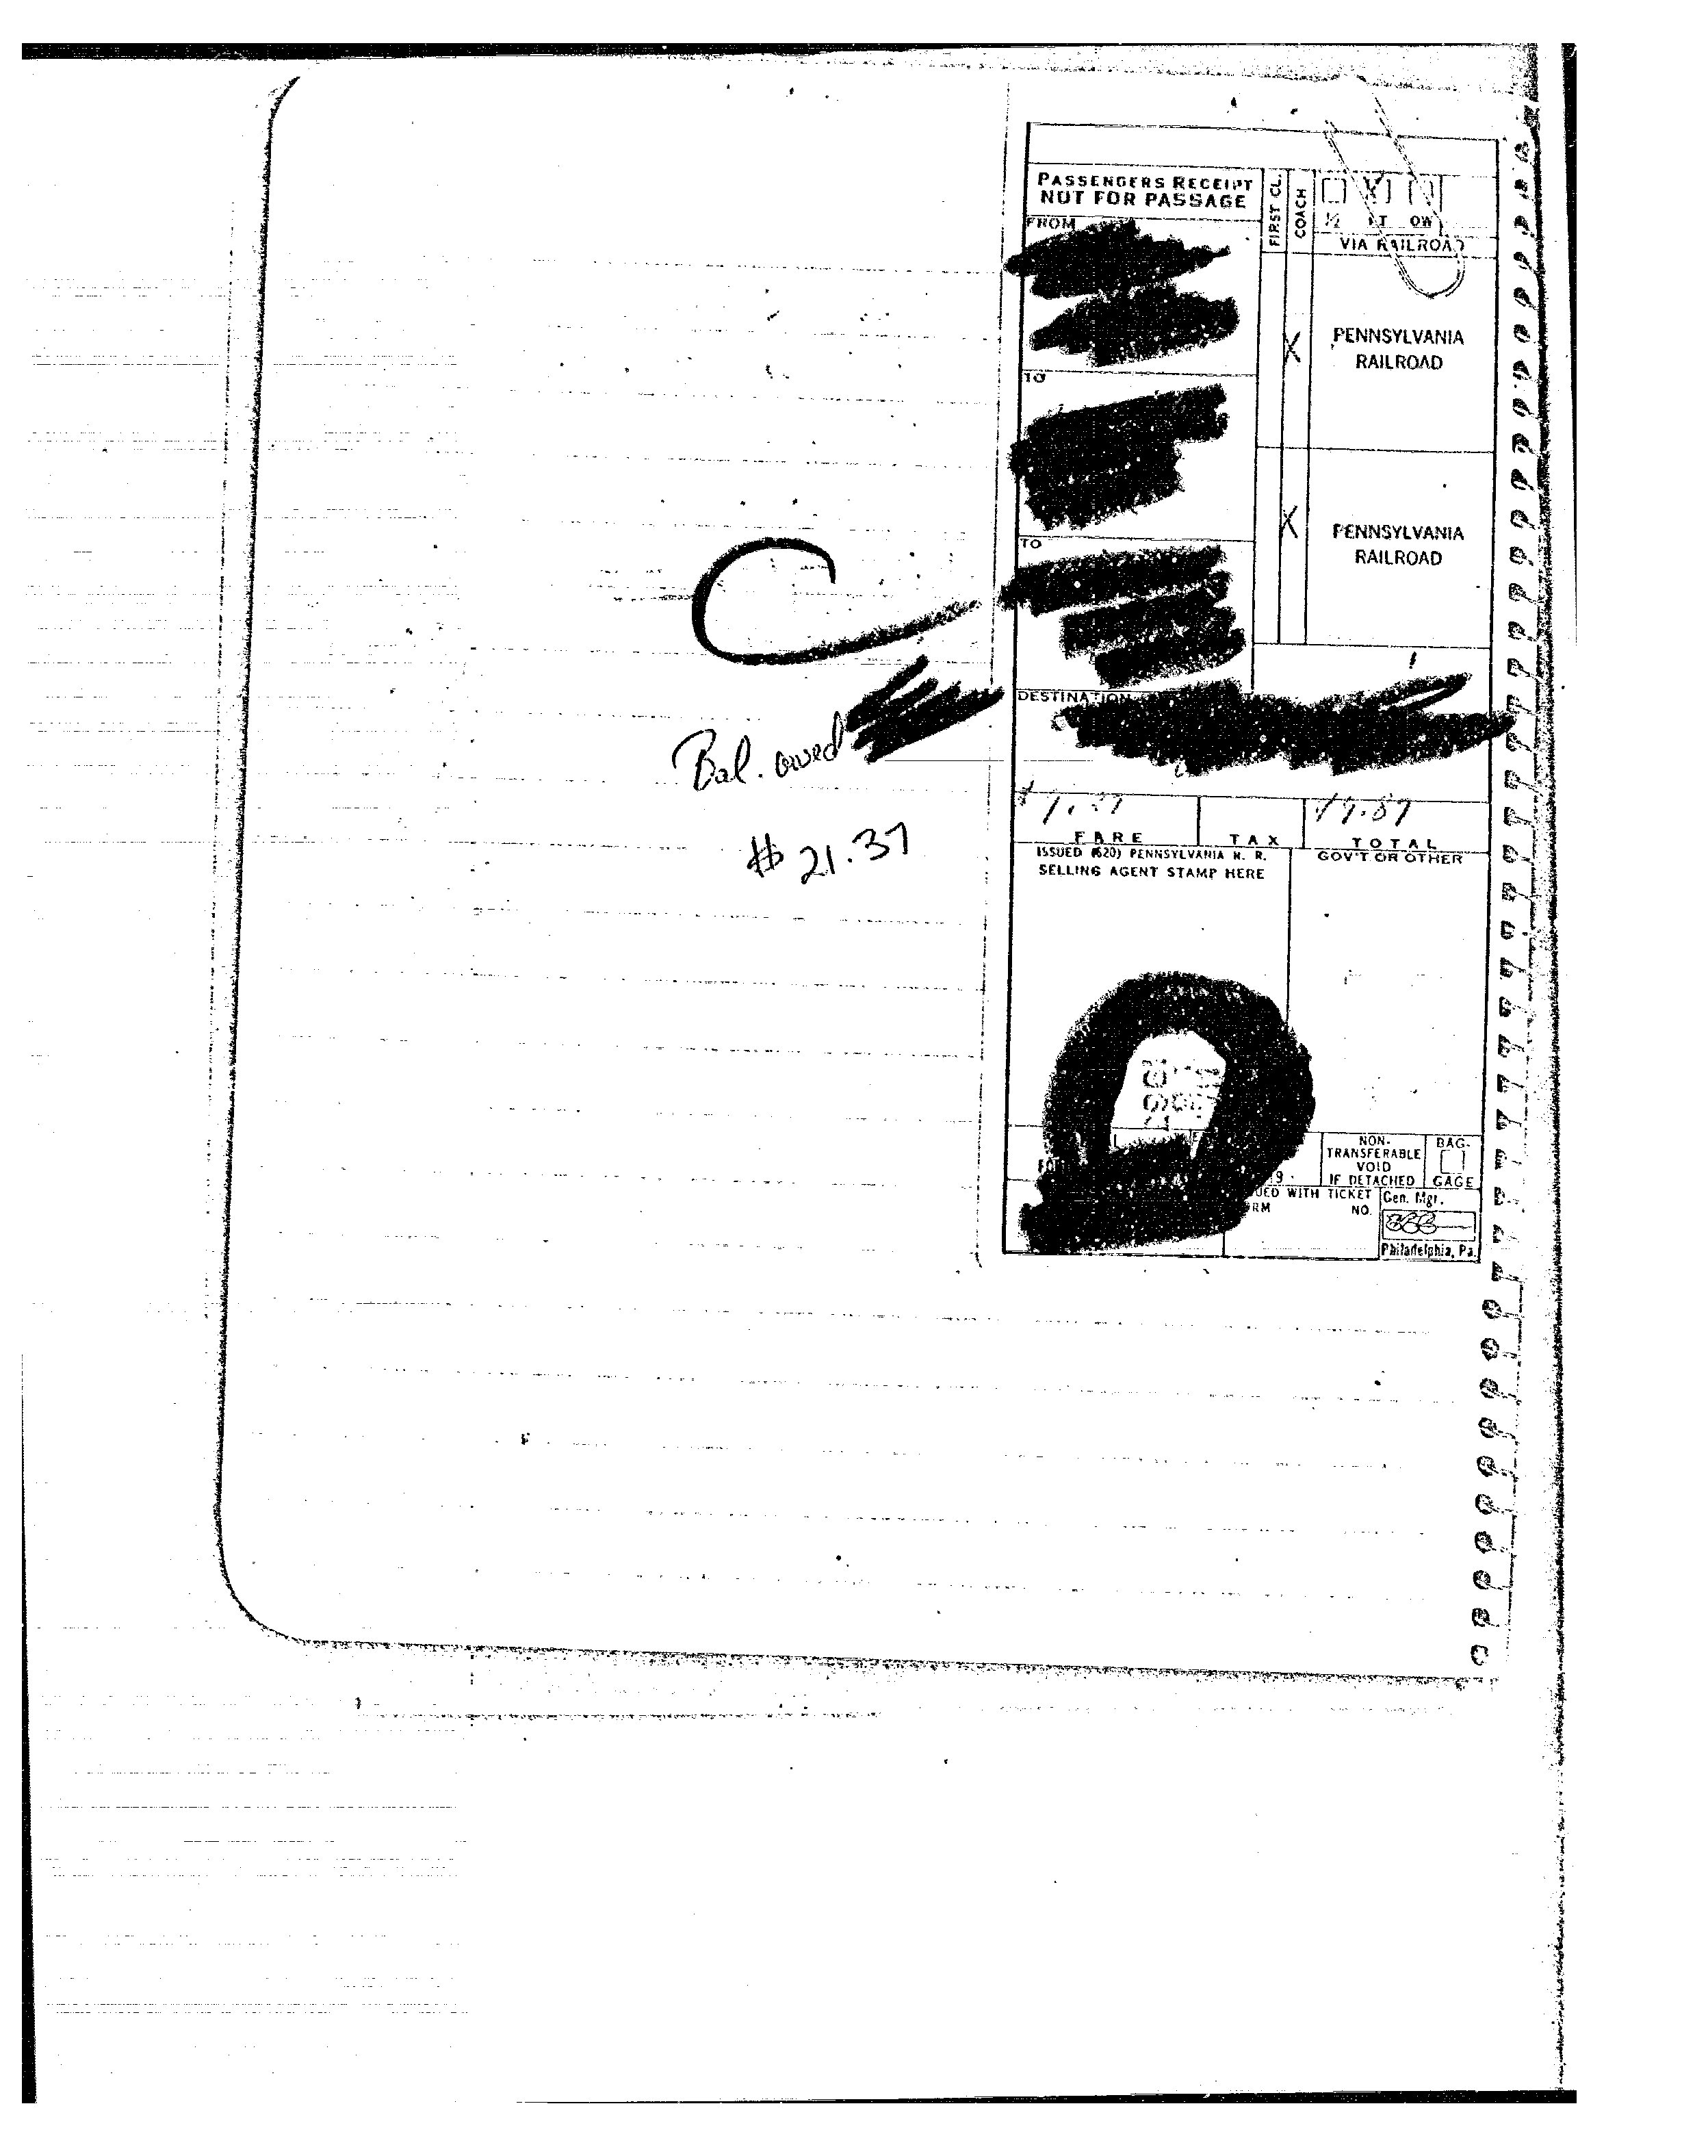 PASSENGERS RECEIPT
NOT FOR PASSAGE
FIRST CL.
COACH
½ RT OW
VIA RAILROAD
FROM
X
PENNSYLVANIA
RAILROAD
TO
X
PENNSYLVANIA
RAILROAD
TO
DESTINATION
Bal. owed
$ 21.37
FARE TAX TOTAL
ISSUED (620) PENNSYLVANIA R. R.
SELLING AGENT STAMP HERE
GOV'T OR OTHER
NON-
TRANSFERABLE
VOID
IF DETACHED
BAG-
GAGE
WITH TICKET
NO.
Gen. Mgr.
Philadelphia, Pa.